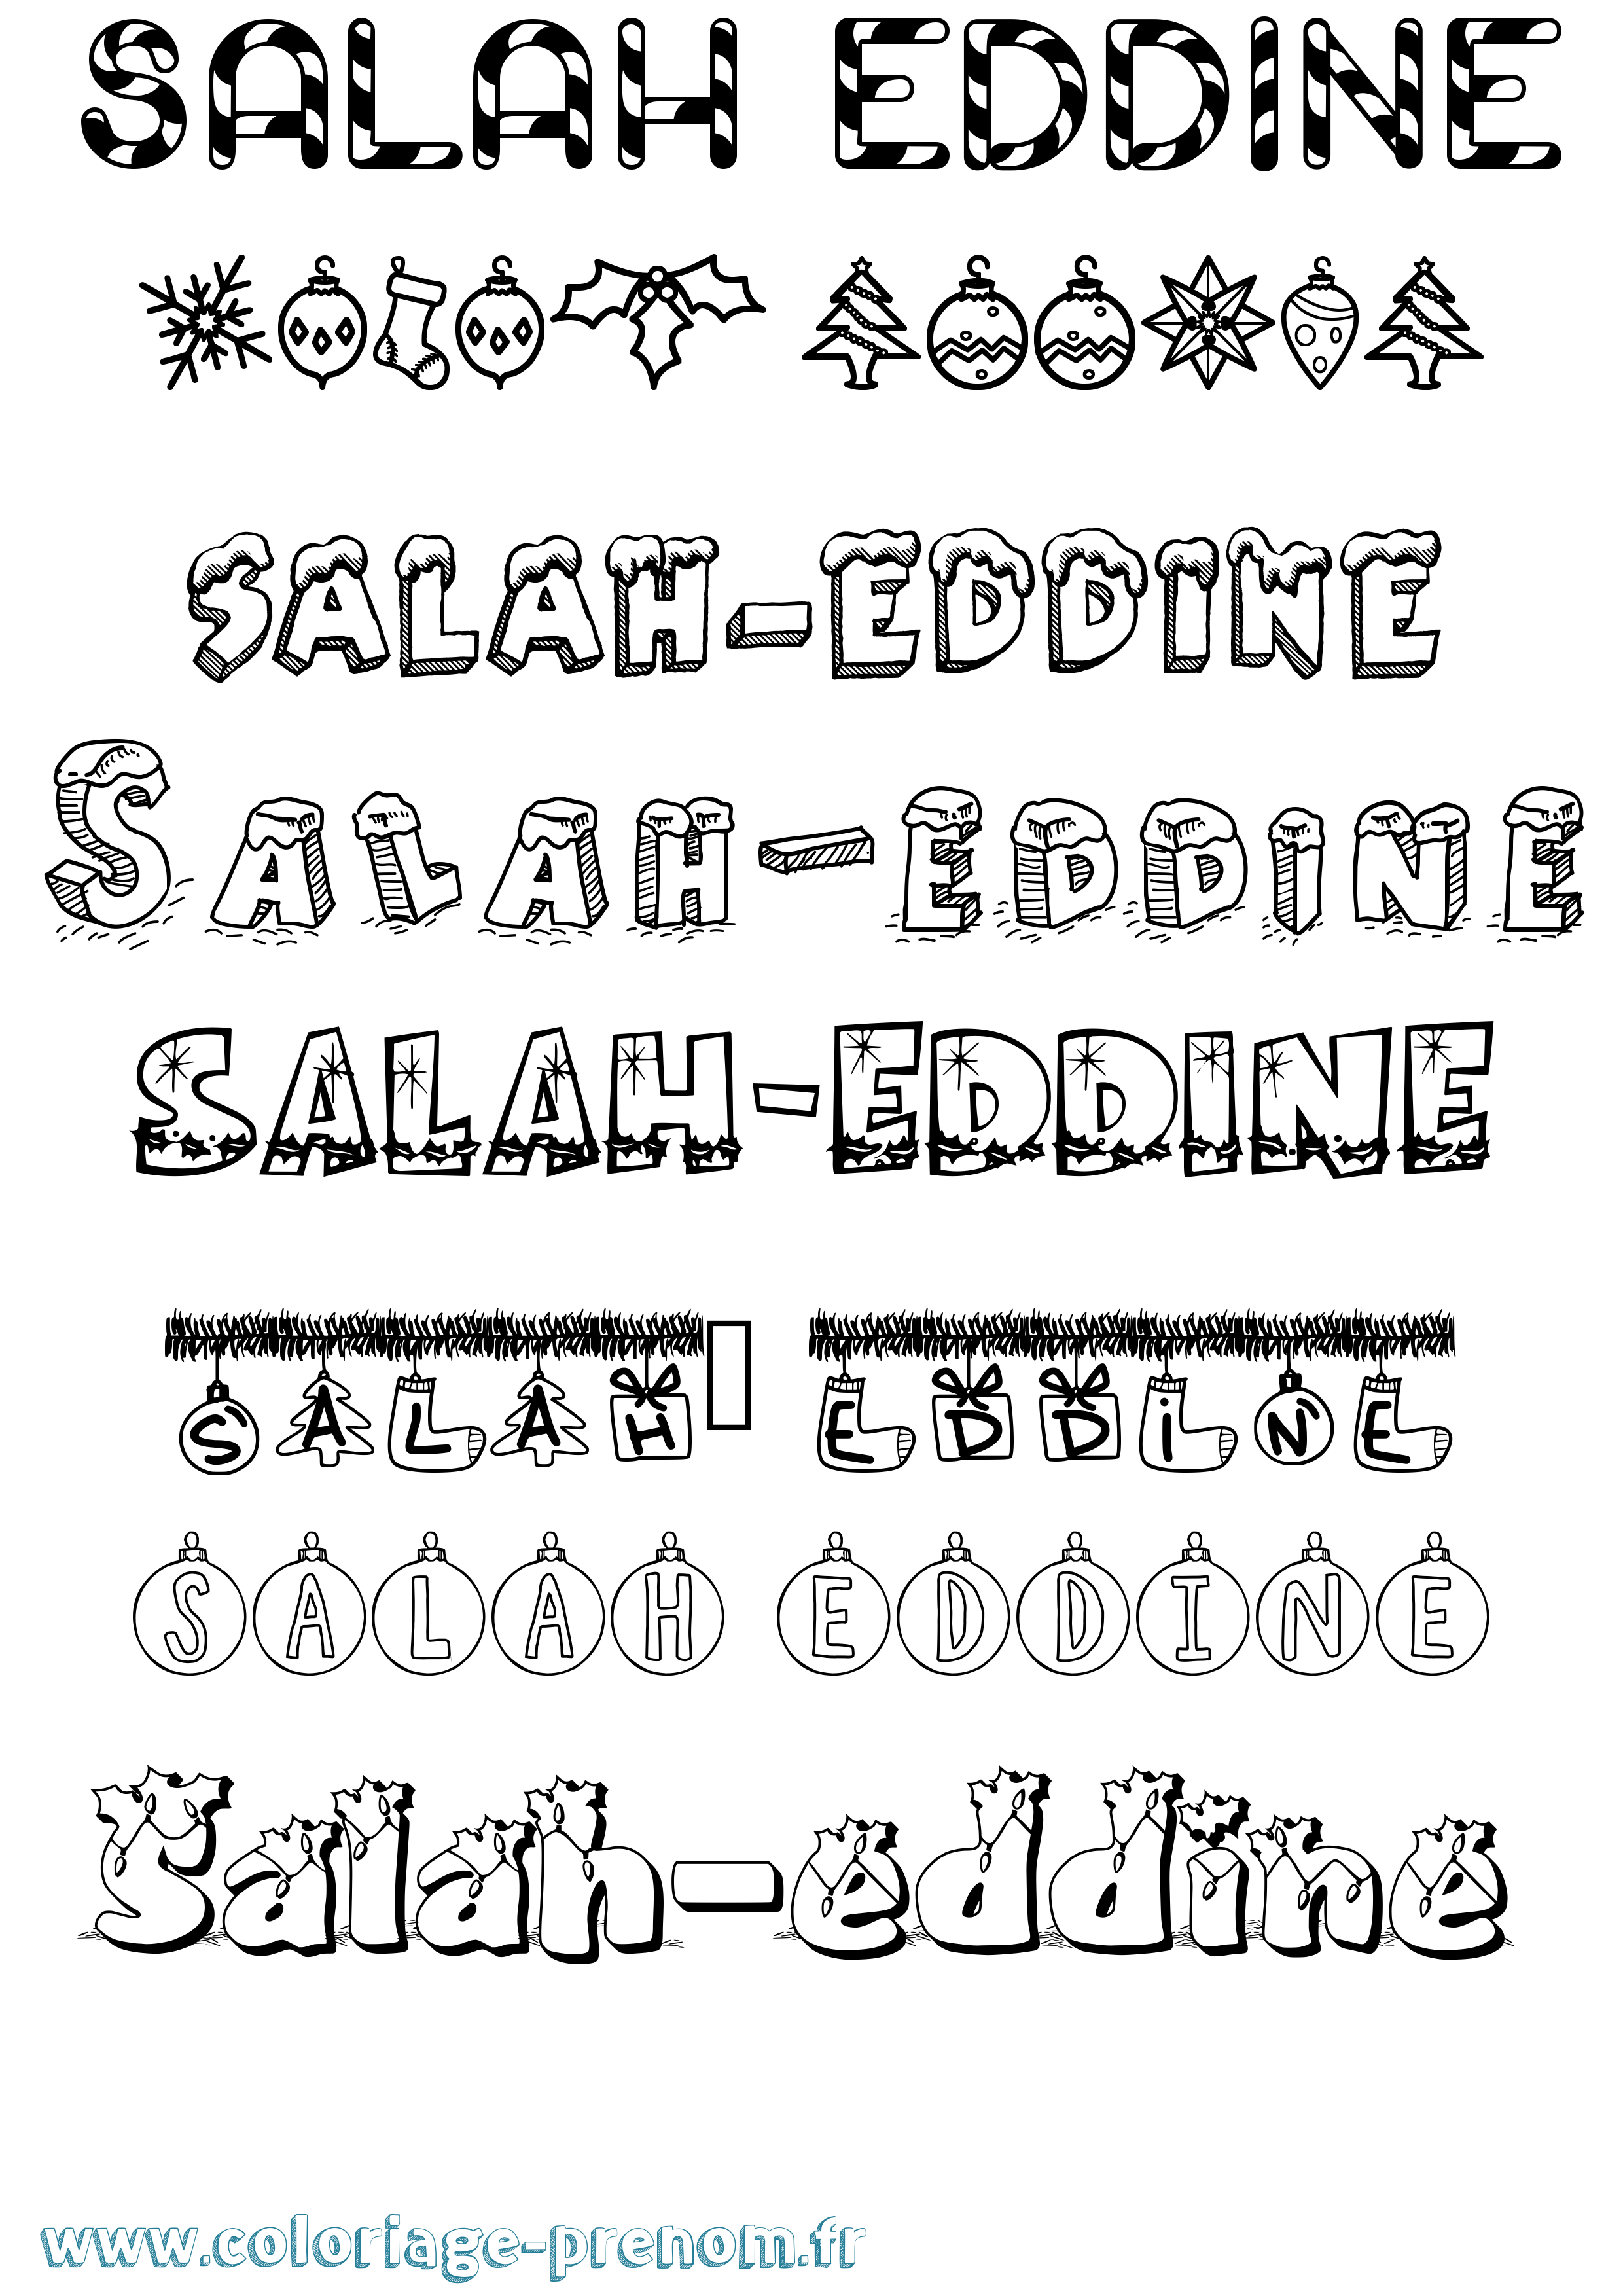 SALAH EDDINE
SALAH-EDDINE
SALAH-EDDINE
SALAH-EDDINE
SALAH EDDiNE
SALAH EDDINE
Salah-eddine
www.coloriage-prenom.fr